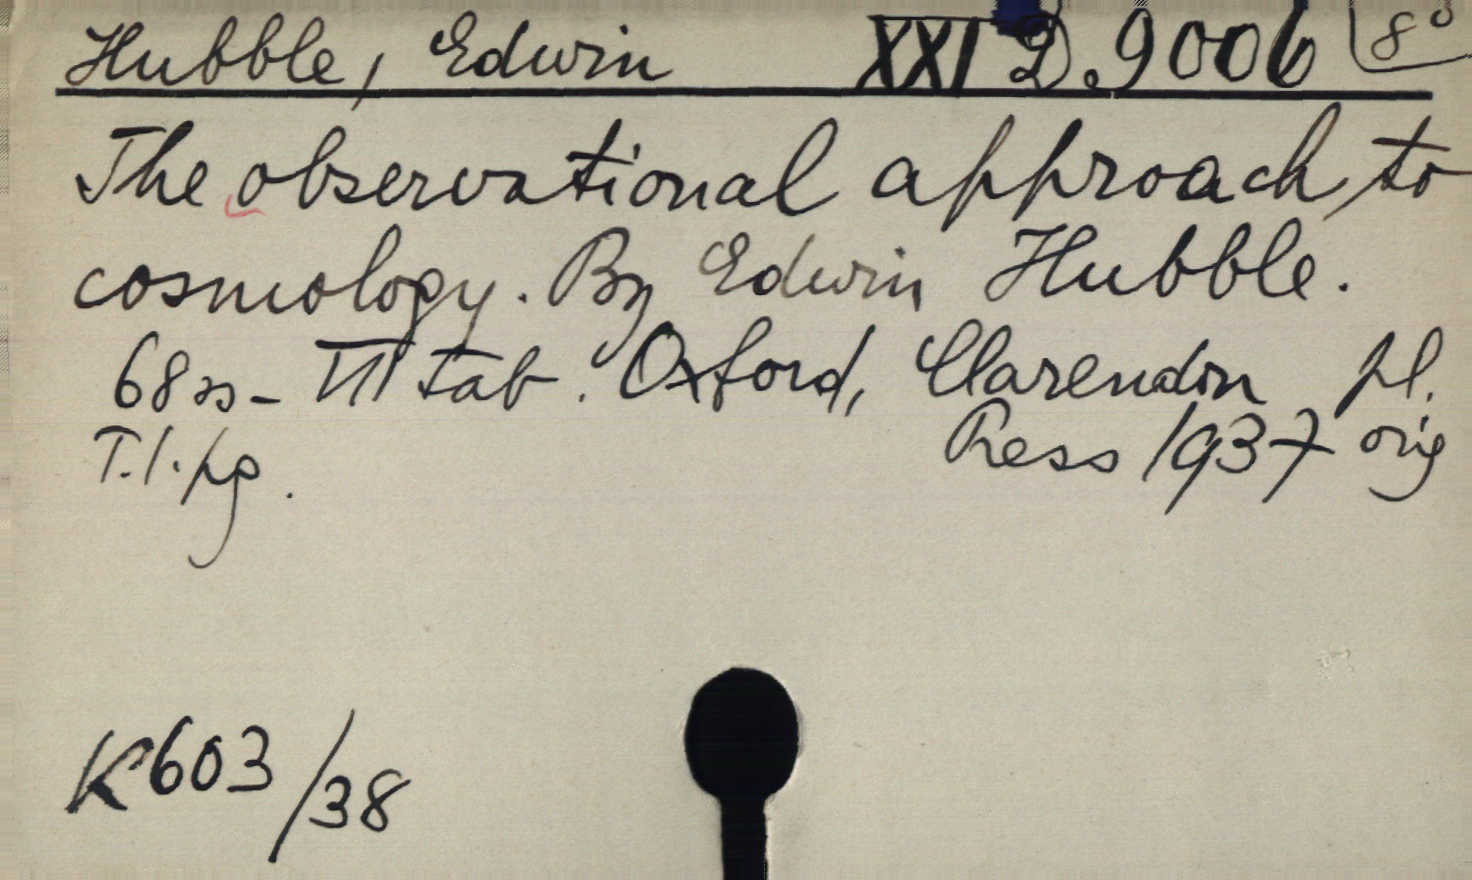 Hubble, Edwin XXI D.9006 8°
The observational approach to
cosmology. By Edwin Hubble.
68 ss - VII tab. Oxford, Clarendon pl.
T.l.pg. Press 1937 orig
K603/38